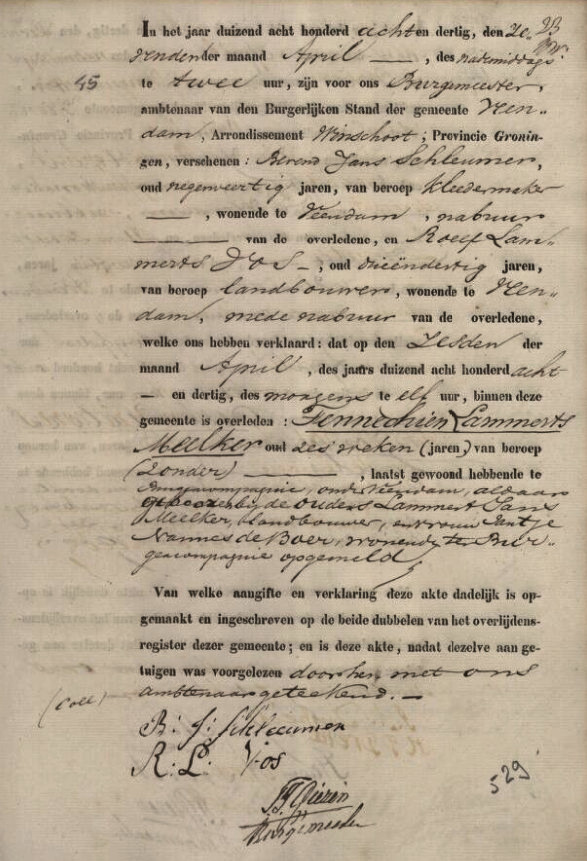 In het jaar duizend acht honderd achten dertig, den ze- 23
venden der maand April —, des nademiddags
45 te twee uur, zijn voor ons Burgemeester,
ambtenaar van den Burgerlijken Stand der gemeente Veen-
dam, Arrondissement Winschoot; Provincie Gronin-
gen, verschenen: Berend Jans Schleumer,
oud negenveertig jaren, van beroep kleedermaker
—, wonende te Veendam, nabuur
— van de overledene, en Roelf Lam-
merts Vos —, oud drieëndertig jaren,
van beroep landbouwer, wonende te Veen-
dam, mede nabuur van de overledene,
welke ons hebben verklaard: dat op den zesden der
maand April, des jaars duizend acht honderd acht
— en dertig, des morgens te elf uur, binnen deze
gemeente is overleden: Fennechien Lammerts
Meelker oud zes weken (jaren) van beroep
(zonder) —, laatst gewoond hebbende te
onder Veendam, aldaar
geboren bij de ouders Lammert Jans
Meelker, landbouwer, en vrouw
Nannes de Boer, wonende te Bur-
geacompagnie opgemeld
Van welke aangifte en verklaring deze akte dadelijk is op-
gemaakt en ingeschreven op de beide dubbelen van het overlijdens-
register dezer gemeente; en is deze akte, nadat dezelve aan ge-
tuigen was voorgelezen door hen met ons
(Coll) ambtenaar geteekend. —
B: J: Schleumer
R: L: Vos
529
Burgemeester